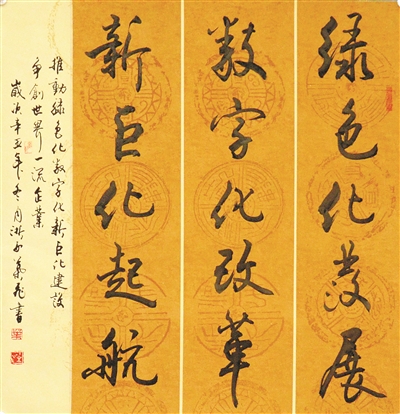 绿色化发展
数字化改革
新巨化起航
推動绿色化数字化新巨化建设
争創世界一流企業
歲次辛丑年冬月浙西
書